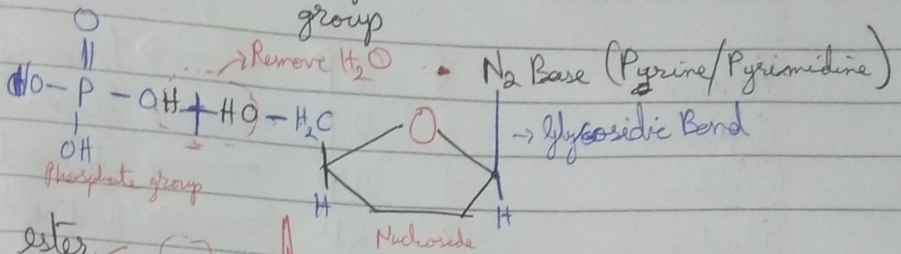 group
O
→Remove H₂O
• N₂ Base (Pyrine/Pyrimidine)
HO-P-OH + HO-H₂C
O
→Glycosidic Bond
OH
Phosphate group
H
H
Nucleoside
ester